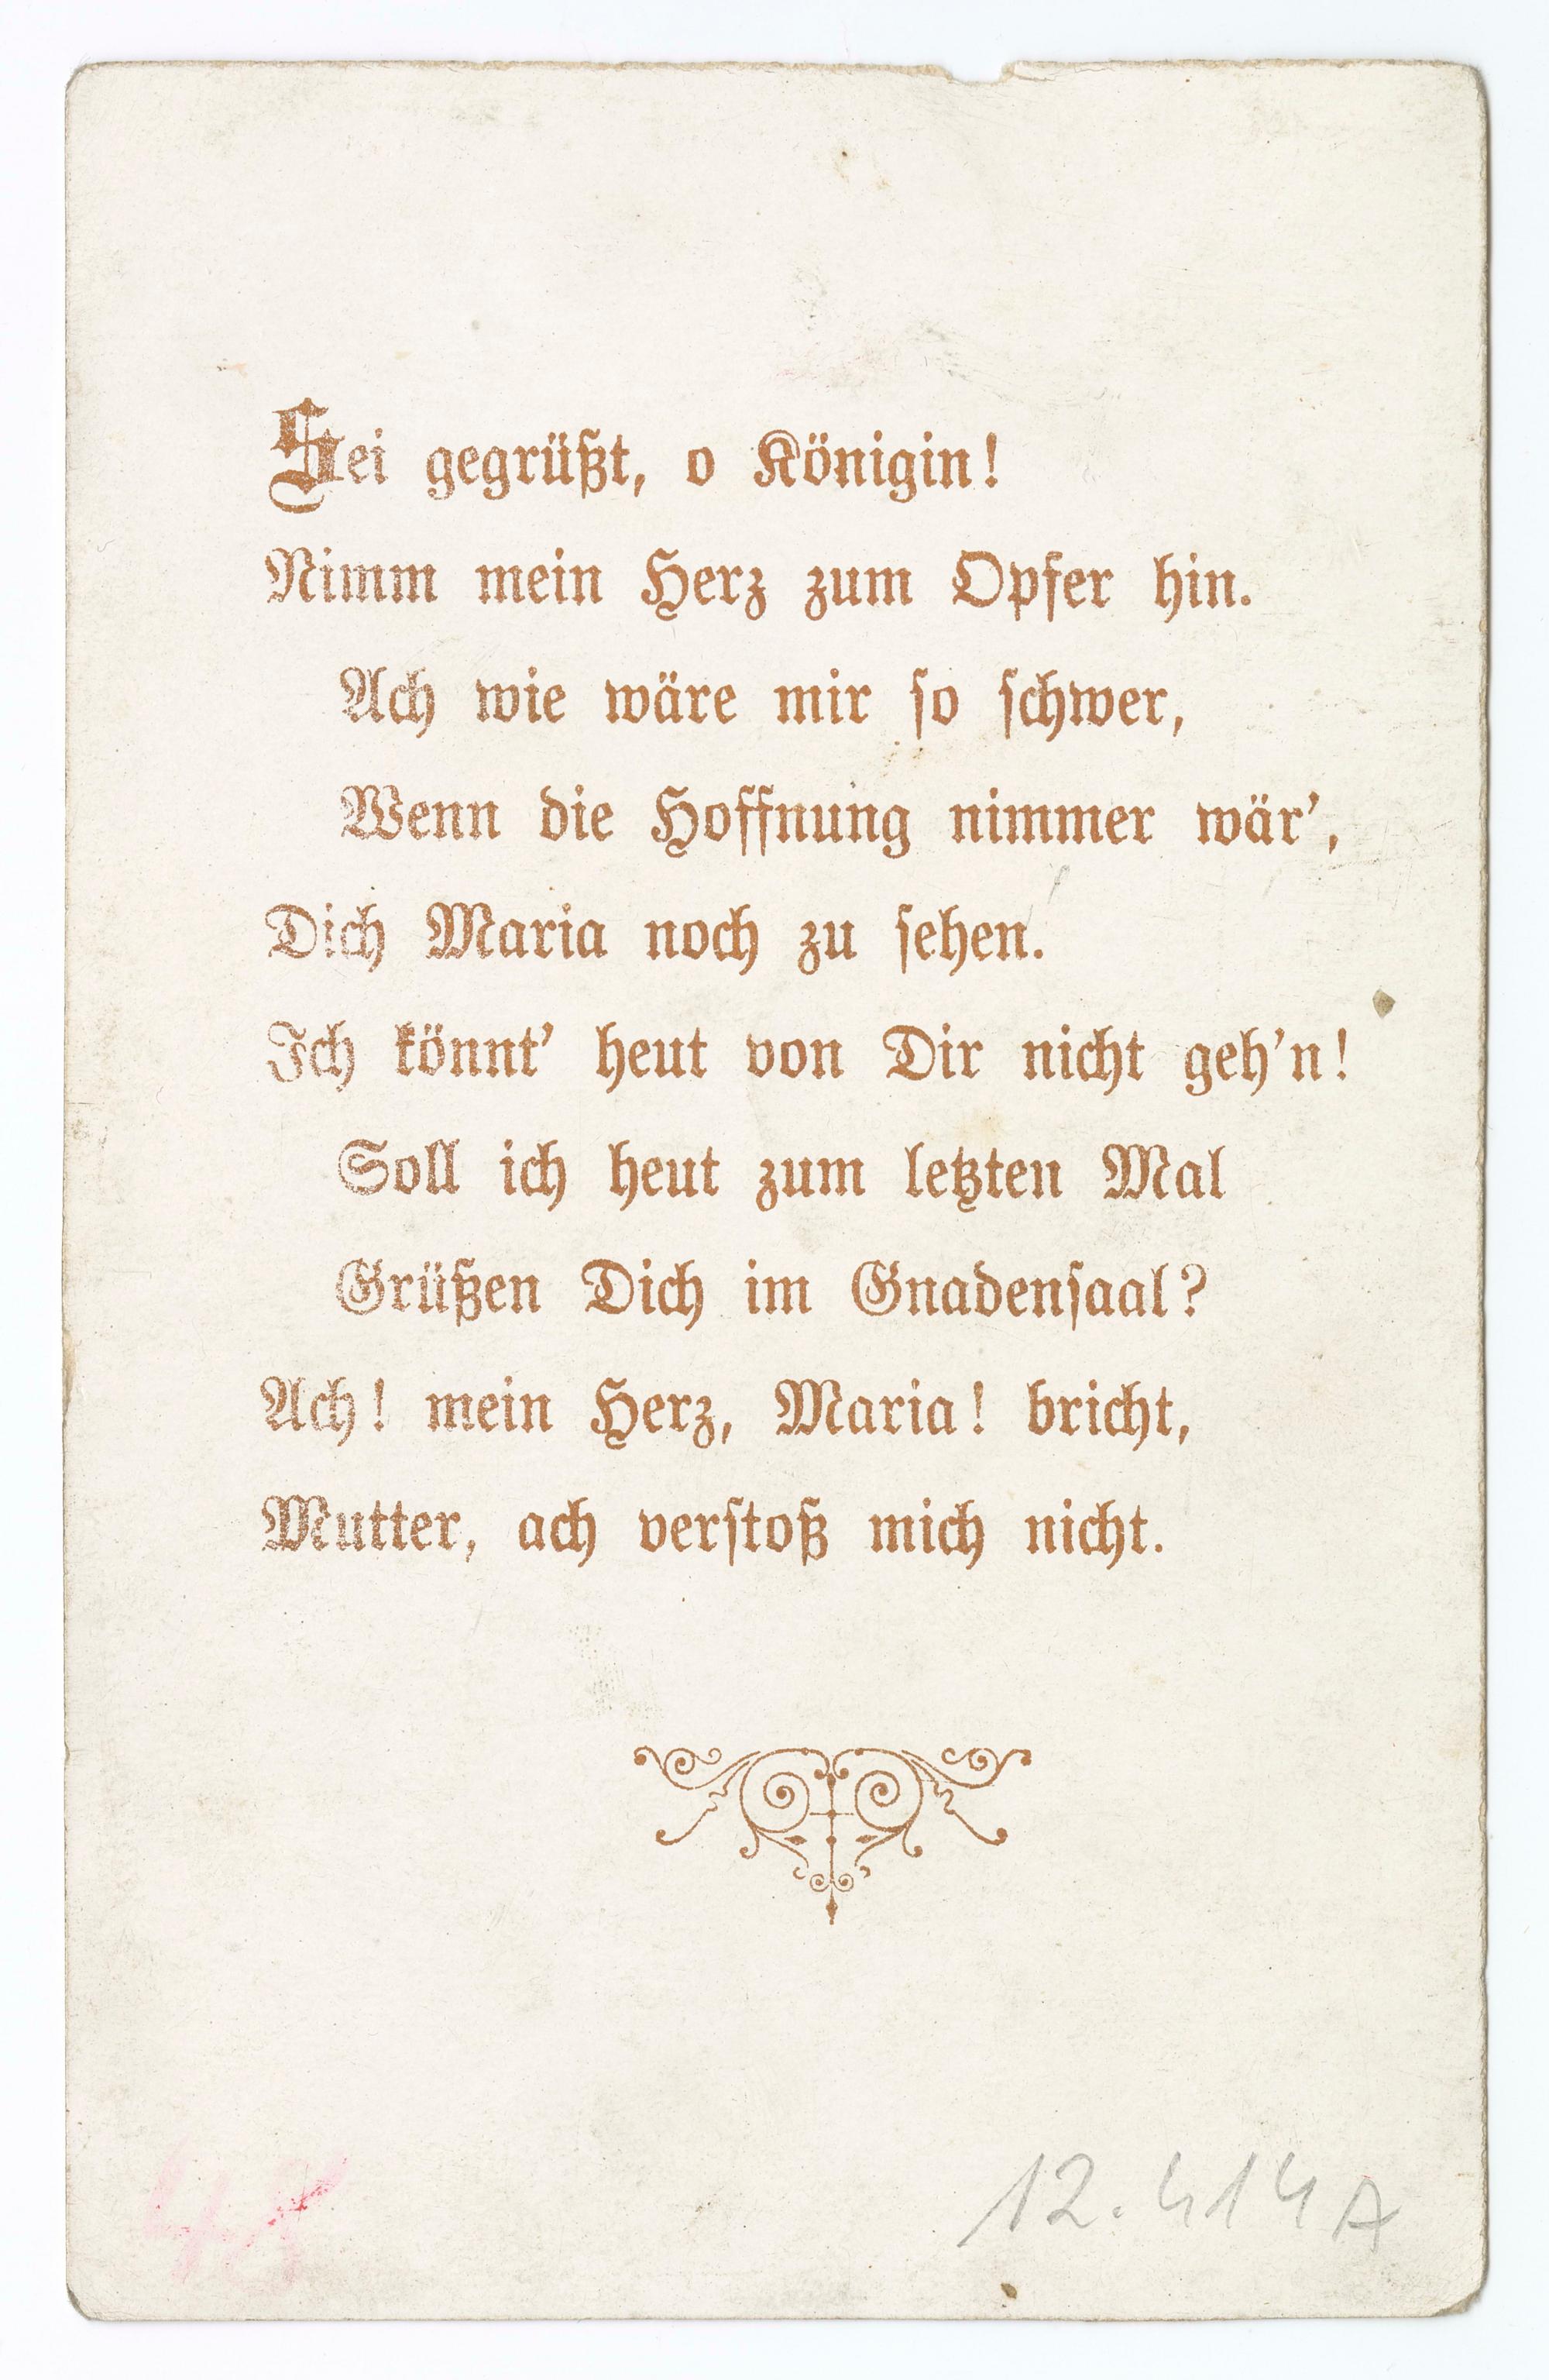 Sei gegrüßt, o Königin!
Nimm mein Herz zum Opfer hin.
Ach wie wäre mir so schwer,
Wenn die Hoffnung nimmer wär',
Dich Maria noch zu sehen.
Ich könnt' heut von Dir nicht geh'n!
Soll ich heut zum letzten Mal
Grüßen Dich im Gnadensaal?
Ach! mein Herz, Maria! bricht,
Mutter, ach verstoß mich nicht.
12.414A